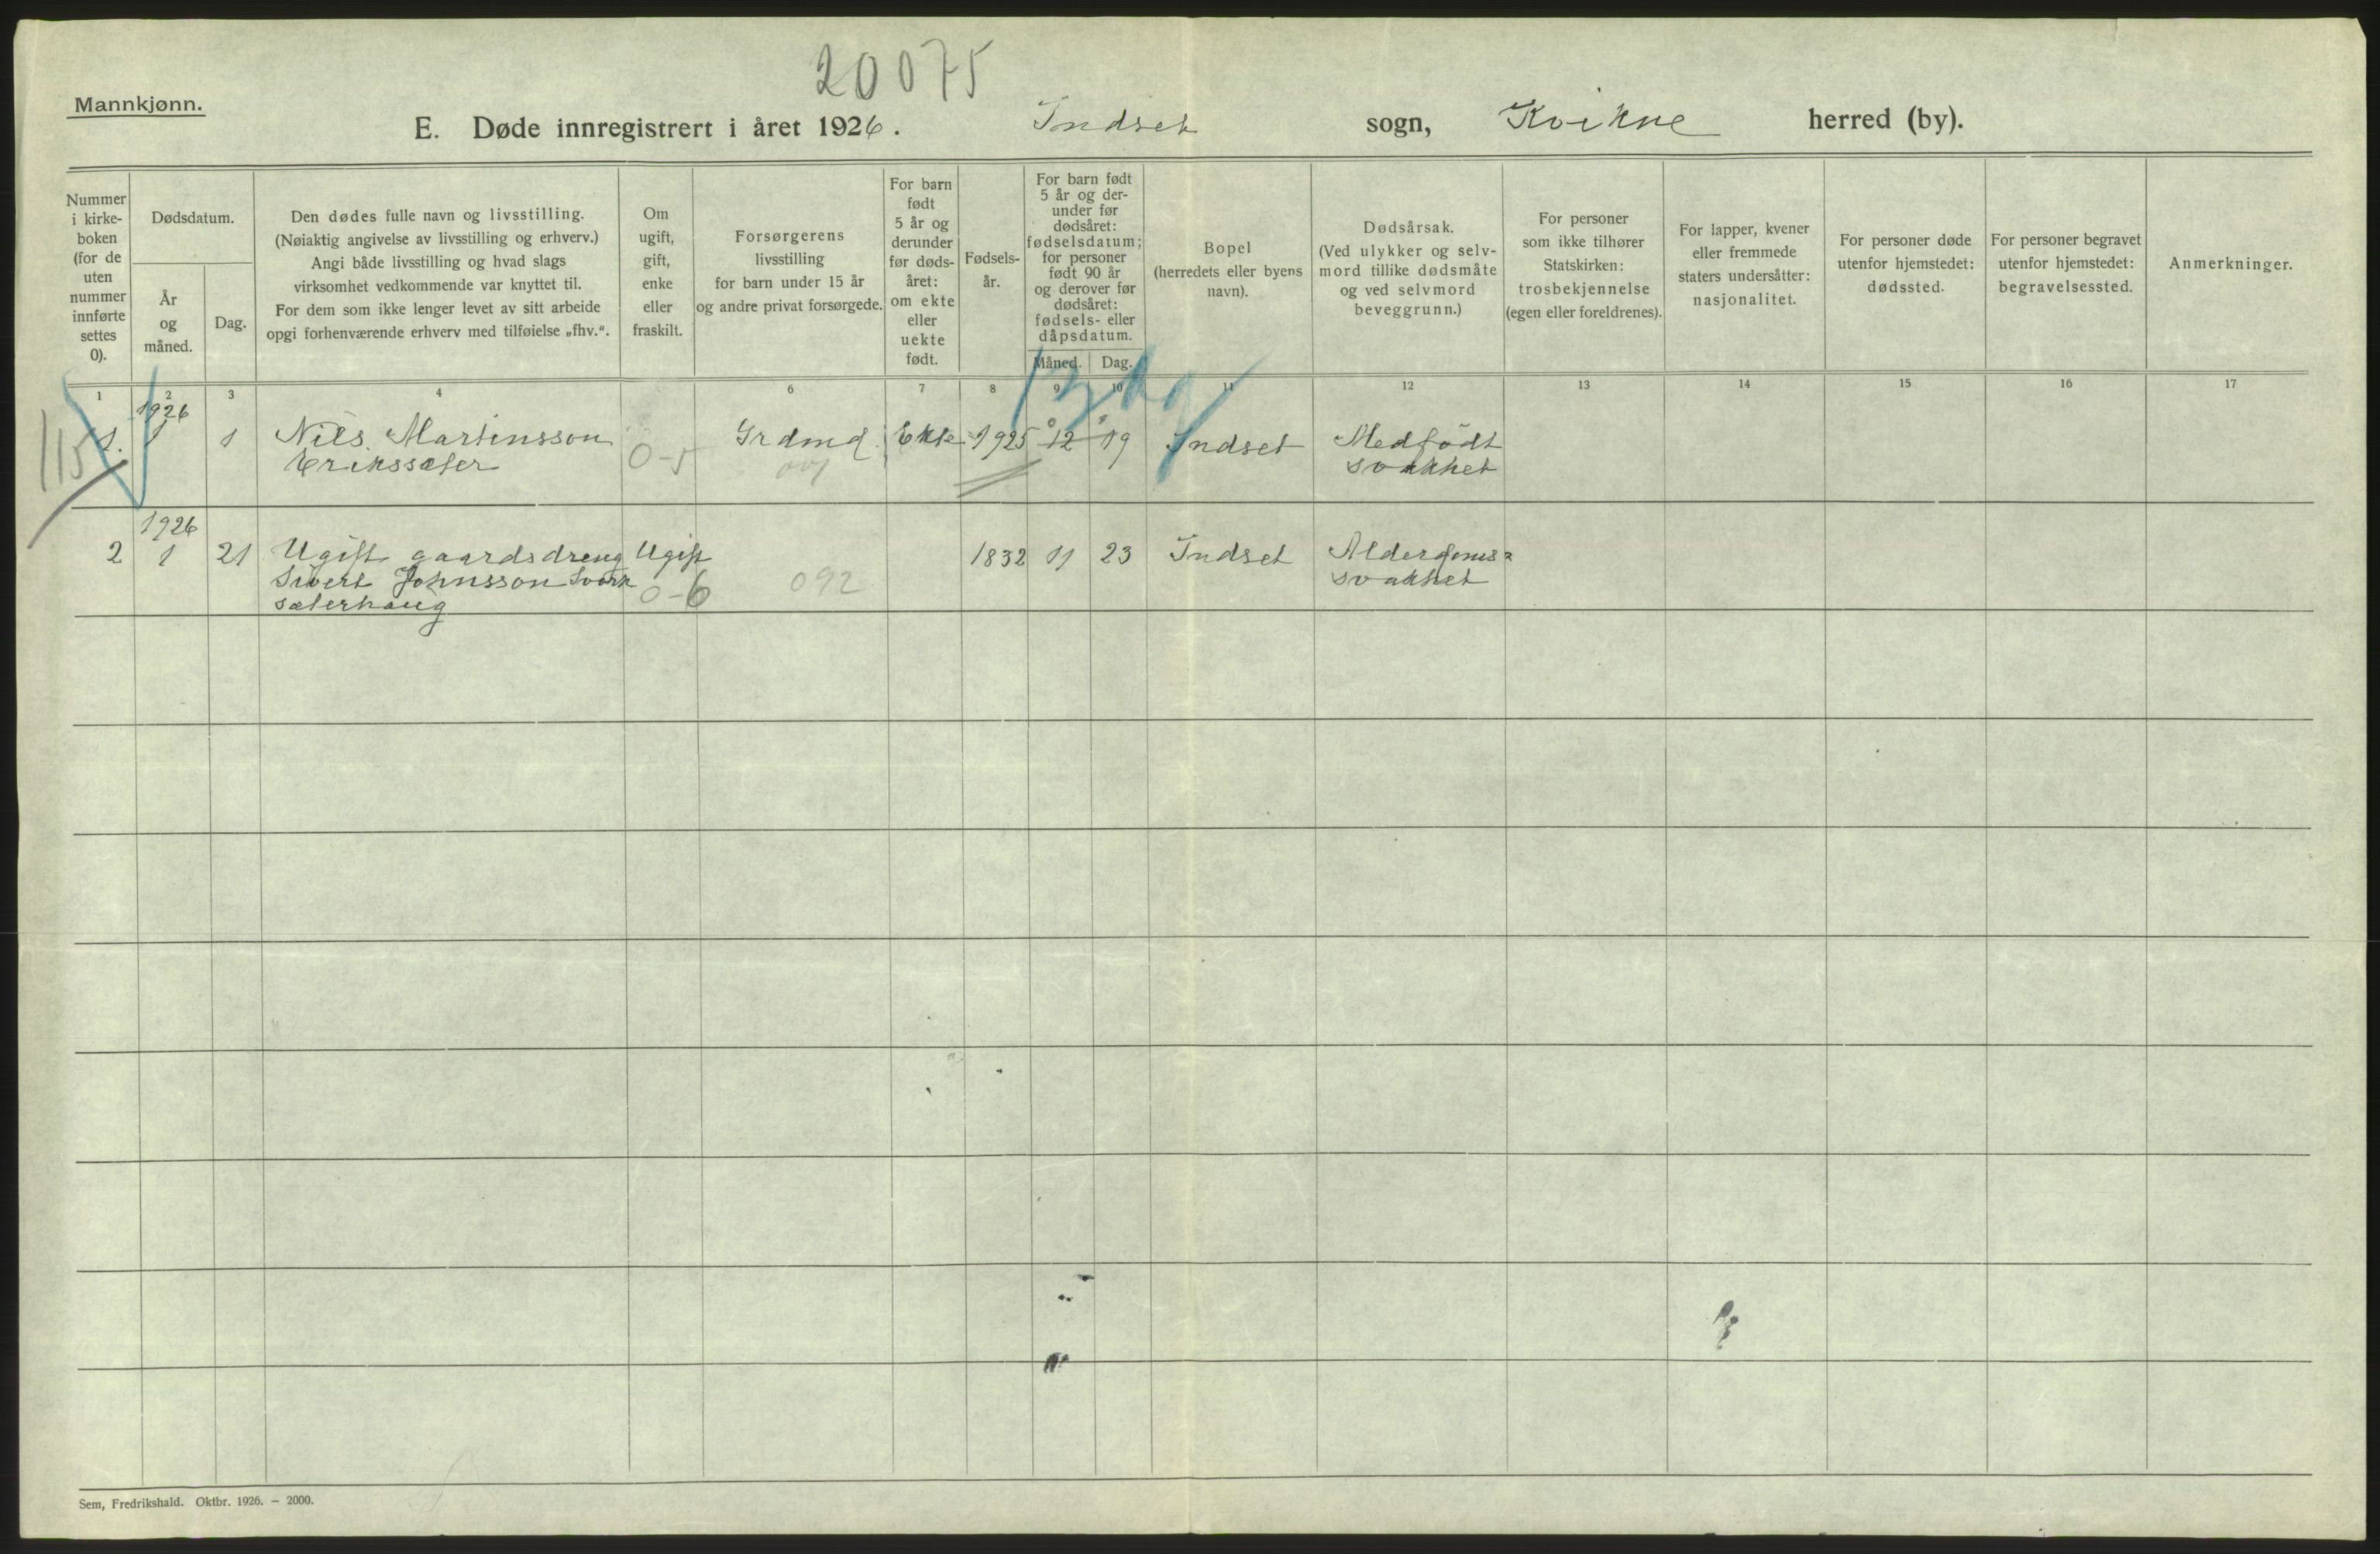 20075
Mannkjønn.
E. Døde innregistrert i året 1926. Indset sogn, Kvikne herred (by).
Nummer i kirke- boken (for de uten nummer innførte settes 0).
Dødsdatum.
År og måned.
Dag.
Den dødes fulle navn og livsstilling.
(Nøiaktig angivelse av livsstilling og erhverv.)
Angi både livsstilling og hvad slags
virksomhet vedkommende var knyttet til.
For dem som ikke lenger levet av sitt arbeide
opgi forhenværende erhverv med tilføielse „fhv.“.
Om ugift, gift, enke eller fraskilt.
Forsørgerens
livsstilling
for barn under 15 år
og andre privat forsørgede.
For barn født 5 år og derunder før døds- året: om ekte eller uekte født.
Fødsels- år.
For barn født 5 år og der- under før dødsåret: fødselsdatum; for personer født 90 år og derover før dødsåret: fødsels- eller dåpsdatum.
Måned. Dag.
Bopel
(herredets eller byens
navn).
Dødsårsak.
(Ved ulykker og selv-
mord tillike dødsmåte
og ved selvmord
beveggrunn.)
For personer
som ikke tilhører
Statskirken:
trosbekjennelse
(egen eller foreldrenes).
For lapper, kvener
eller fremmede
staters undersåtter:
nasjonalitet.
For personer døde
utenfor hjemstedet:
dødssted.
For personer begravet
utenfor hjemstedet:
begravelsessted.
Anmerkninger.
1 2 3 4 6 7 8 9 10 11 12 13 14 15 16 17
13 dg
1926
115 1. 1 1 Nils Martinsson Grdmd Ekte 1925 12 19 Indset Medfödt
Erikssæter 0-5 svakhet
1926
2 1 21 Ugift gaardsdreng Ugift 1832 11 23 Indset Alderdoms=
Sivert Johnsson Svark 0-6 092 svakhet
sæterhaug
Sem, Fredrikshald. Oktbr. 1926. — 2000.